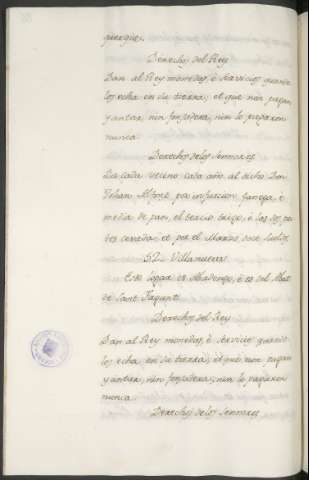 guergues.
Derechos del Rey
Dan al Rey monedas, é servicios quando
los echa en su tierra, et que non pagan
yantar, nin fonsadera, nin lo pagaron
nunca.
Derechos de los Sennores
Da cada vecino cada año al dicho Don
Johan Alfons por infurcion fanega é
media de pan, el tercio trigo, é las dos par
tes cevada, et por el Marzo doce sueldos.
52. Villanueva
Este logar es Abadengo, é es del Abat
de Sant Fagunt.
Derechos del Rey
Dan al Rey monedas, é servicios quando
los echa en su tierra, et que non pagan
yantar, nin fonsadera, nin lo pagaron
nunca.
Derechos de los Sennores